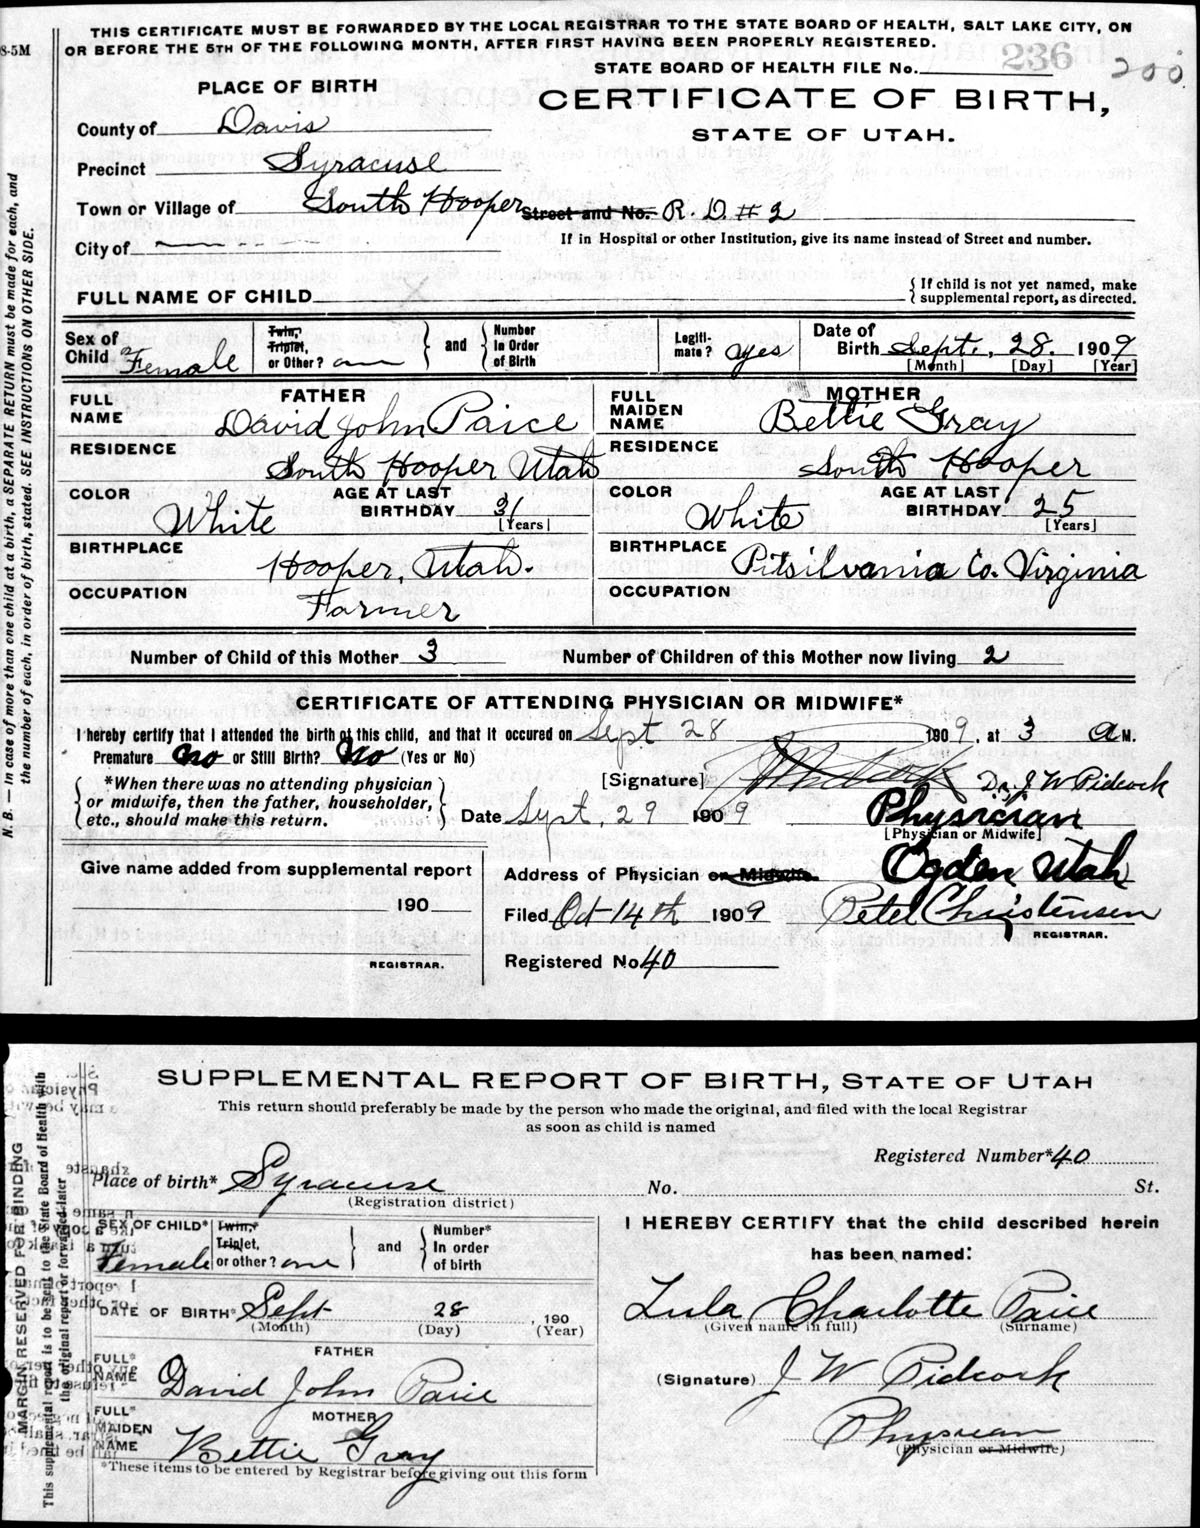 THIS CERTIFICATE MUST BE FORWARDED BY THE LOCAL REGISTRAR TO THE STATE BOARD OF HEALTH, SALT LAKE CITY, ON
OR BEFORE THE 5TH OF THE FOLLOWING MONTH, AFTER FIRST HAVING BEEN PROPERLY REGISTERED.
8-5M
STATE BOARD OF HEALTH FILE No. 236 200
PLACE OF BIRTH
CERTIFICATE OF BIRTH,
STATE OF UTAH.
County of Davis
Precinct Syracuse
Town or Village of South Hooper Street and No. R. D. # 2
City of
If in Hospital or other Institution, give its name instead of Street and number.
FULL NAME OF CHILD
{ If child is not yet named, make
supplemental report, as directed.
N. B. — In case of more than one child at a birth, a SEPARATE RETURN must be made for each, and
the number of each, in order of birth, stated. SEE INSTRUCTIONS ON OTHER SIDE.
Sex of Child Female
Twin, Triplet, or Other? one } and { Number In Order of Birth
Legiti-mate? yes
Date of Birth Sept. 28. 1909
[Month] [Day] [Year]
FATHER
FULL NAME David John Paice
RESIDENCE South Hooper Utah
COLOR White AGE AT LAST BIRTHDAY 31 [Years]
BIRTHPLACE Hooper, Utah.
OCCUPATION Farmer
MOTHER
FULL MAIDEN NAME Bettie Gray
RESIDENCE South Hooper
COLOR White AGE AT LAST BIRTHDAY 25 [Years]
BIRTHPLACE Pitsilvania Co. Virginia
OCCUPATION
Number of Child of this Mother 3 Number of Children of this Mother now living 2
CERTIFICATE OF ATTENDING PHYSICIAN OR MIDWIFE*
I hereby certify that I attended the birth of this child, and that it occured on Sept 28 1909, at 3 A M.
Premature No or Still Birth? No (Yes or No)
{ *When there was no attending physician
or midwife, then the father, householder,
etc., should make this return. }
[Signature] Dr. J W Pidcock
Date Sept, 29 1909 Physician
[Physician or Midwife]
Give name added from supplemental report
190
REGISTRAR.
Address of Physician or Midwife. Ogden Utah
Filed Oct 14th 1909 Peter Christensen
REGISTRAR.
Registered No 40
SUPPLEMENTAL REPORT OF BIRTH, STATE OF UTAH
This return should preferably be made by the person who made the original, and filed with the local Registrar
as soon as child is named
Registered Number* 40
Place of birth* Syracuse No. St.
(Registration district)
MARGIN RESERVED FOR BINDING
This supplemental report is to be sent to the State Board of Health with
the original report or forwarded later
SEX OF CHILD* Female
Twin, Triplet, or other? one } and { Number* In order of birth
DATE OF BIRTH* Sept 28, 190
(Month) (Day) (Year)
FATHER
FULL* NAME David John Paice
MOTHER
FULL* MAIDEN NAME Bettie Gray
*These items to be entered by Registrar before giving out this form
I HEREBY CERTIFY that the child described herein
has been named:
Lula Charlotte Paice
(Given name in full) (Surname)
(Signature) J W Pidcock
Physician
(Physician or Midwife)